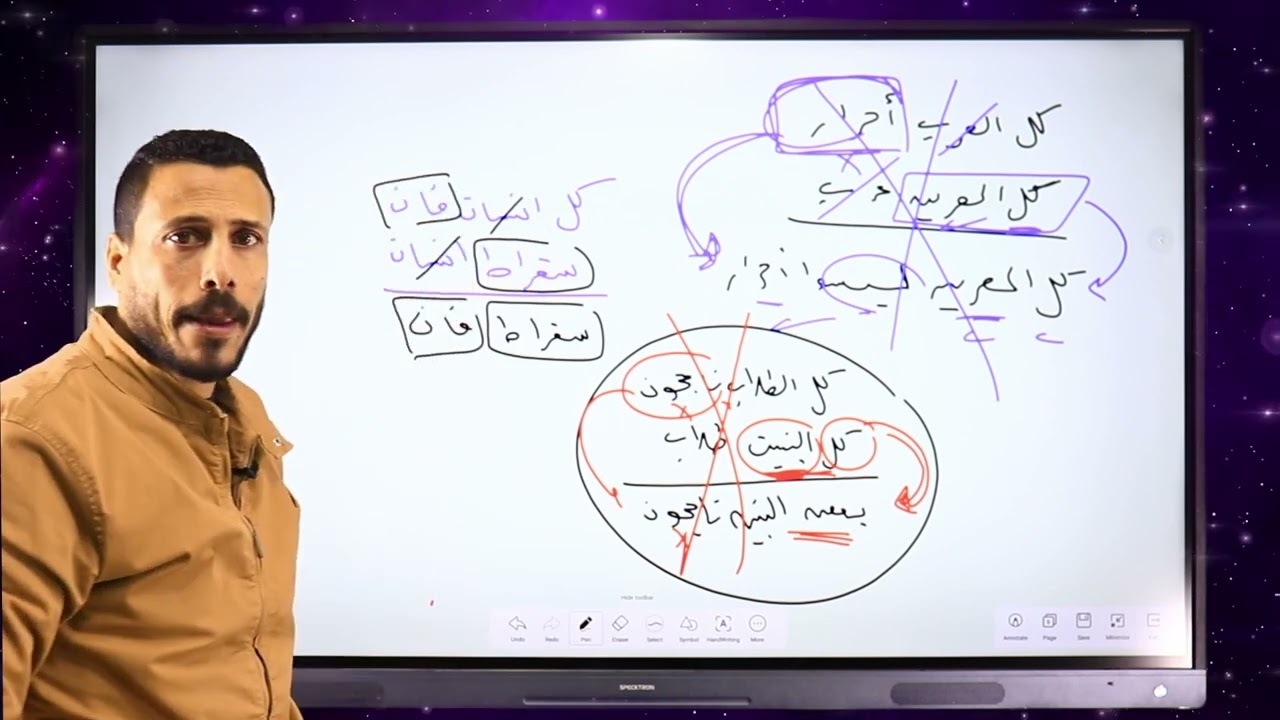 كل العرب أحرار
كل المصريين عرب
كل المصريين ليسوا أحرار
كل انسان فان
سقراط انسان
سقراط فان
كل الطلاب ناجحون
كل البشر طلاب
بعض البشر ناجحون
Hide toolbar
Undo Redo Pen Eraser Select Symbol HandWriting More
Annotate Page Save Minimize
SPECKTRON